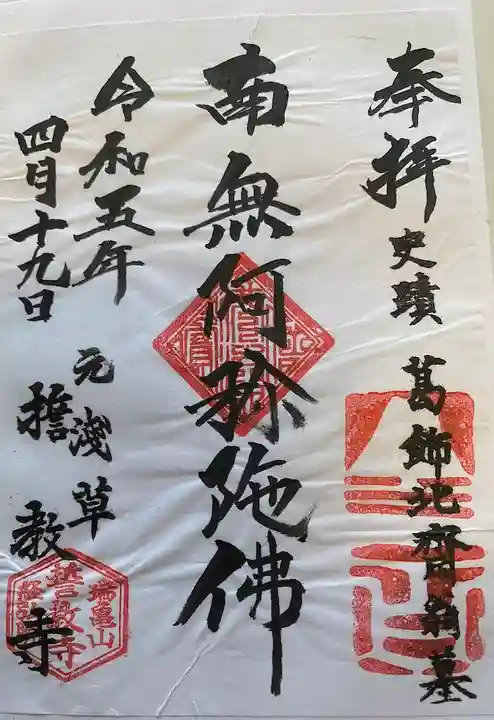 奉拝
史蹟 葛飾北齋翁墓
南無阿弥陀佛
令和五年
四月十九日
元浅草
誓教寺
瑞亀山
誓教寺